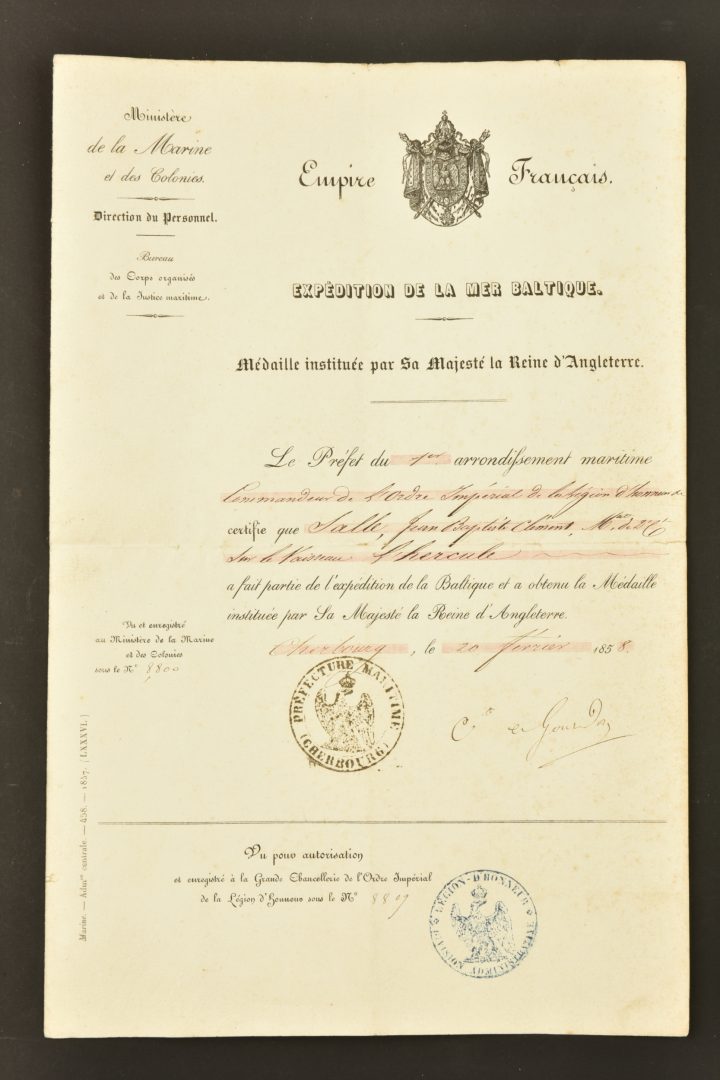 Ministère
de la Marine
et des Colonies.
Direction du Personnel.
Bureau
des Corps organisés
et de la Justice maritime.
Empire Français.
EXPÉDITION DE LA MER BALTIQUE.
Médaille instituée par Sa Majesté la Reine d'Angleterre.
Le Préfet du 1er arrondissement maritime
Commandeur de l'Ordre Impérial de la Légion d'honneur
certifie que Salle, Jean Baptiste Clément,
Sur le Vaisseau l'hercule
a fait partie de l'expédition de la Baltique et a obtenu la Médaille
instituée par Sa Majesté la Reine d'Angleterre.
Cherbourg, le 20 février 1858.
Vu et enregistré
au Ministère de la Marine
et des Colonies
sous le N° 8800
PRÉFECTURE MARITIME
(CHERBOURG)
Marine. — Admon centrale. — 458. — 1857. (LXXXVI.)
Vu pour autorisation
et enregistré à la Grande Chancellerie de l'Ordre Impérial
de la Légion d'Honneur sous le N° 8809
LÉGION-D'HONNEUR
DIVISION ADMINISTRATIVE